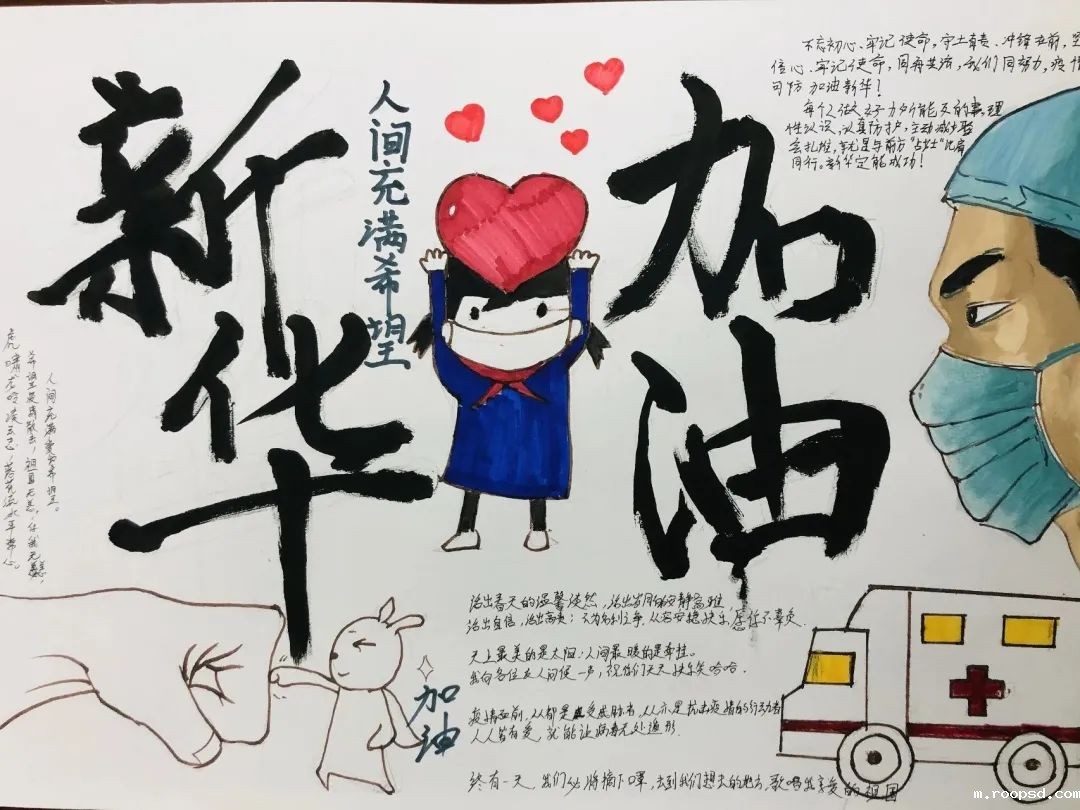 新华
加油
人间充满希望
不忘初心、牢记使命，守土有责、冲锋在前，坚
信心、牢记使命，同舟共济，我们同努力，疫情
可防 加油新华！
每个人做好力所能及的事，理
性认识，认真防护，主动减少聚
会扎堆，就是与前方"战士"比肩
同行。新华定能成功！
人间充满爱与希望。
希望
虎啸龙吟
活出春天的温馨淡然，活出岁月的安静高雅
活出自信，活出高贵；不为名利之争，从容安稳快乐，愿你不辜负
天上最美的是太阳；人间最暖的是
我向各位友人问候一声，祝你们天天快乐笑哈哈。
疫情面前，人人都是受威胁者，人人亦是抗击疫情的行动者
人人皆有爱，就能让病毒无处遁形
终有一天，我们必将摘下口罩，去到我们想去的地方，歌唱我亲爱的祖国
加油
m.roopsd.com